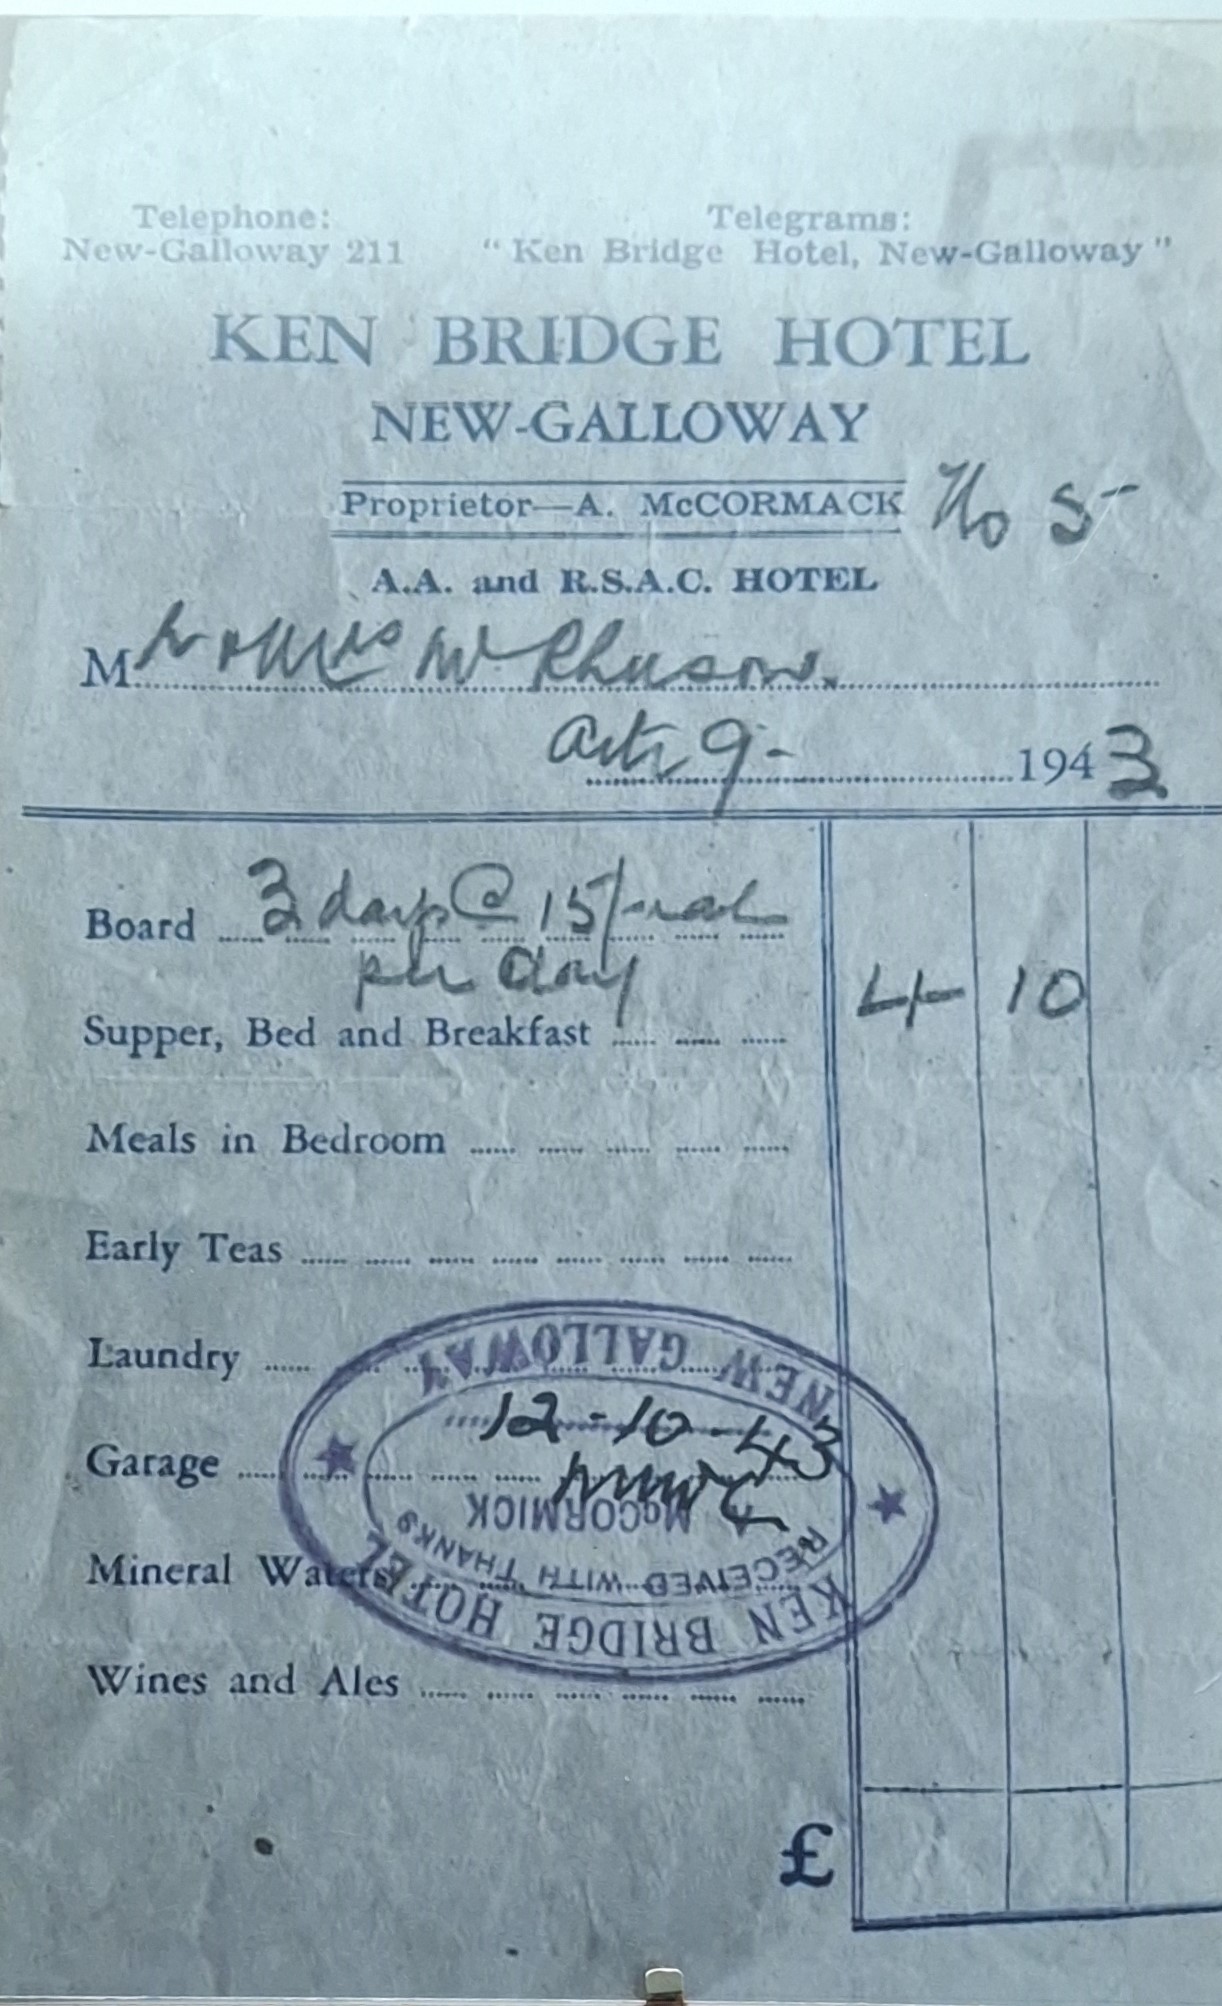 Telephone: Telegrams:
New-Galloway 211 "Ken Bridge Hotel, New-Galloway"
KEN BRIDGE HOTEL
NEW-GALLOWAY
Proprietor—A. McCORMACK No 5-
A.A. and R.S.A.C. HOTEL
Mr & Mrs
9- 1943
Board 3 days @ 15/-
per day 4 10
Supper, Bed and Breakfast
Meals in Bedroom
Early Teas
Laundry
Garage
Mineral Waters
Wines and Ales
£
KEN BRIDGE HOTEL
RECEIVED WITH THANKS
McCORMICK
12-10-43
NEW GALLOWAY